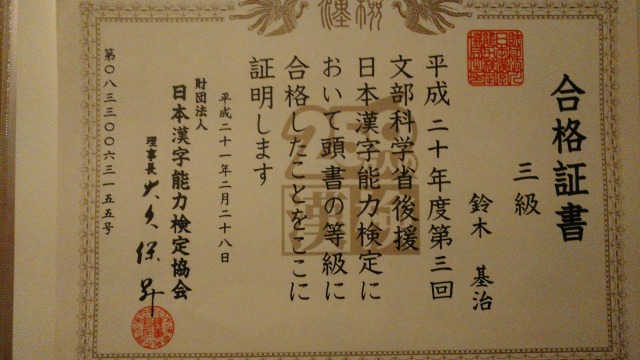 合格証書
三級
鈴木 基治
平成二十年度第三回
文部科学省後援
日本漢字能力検定に
おいて頭書の等級に
合格したことをここに
証明します
平成二十一年二月二十八日
財団法人
日本漢字能力検定協会
理事長 大久保昇
第〇八三三〇〇六三一五五号